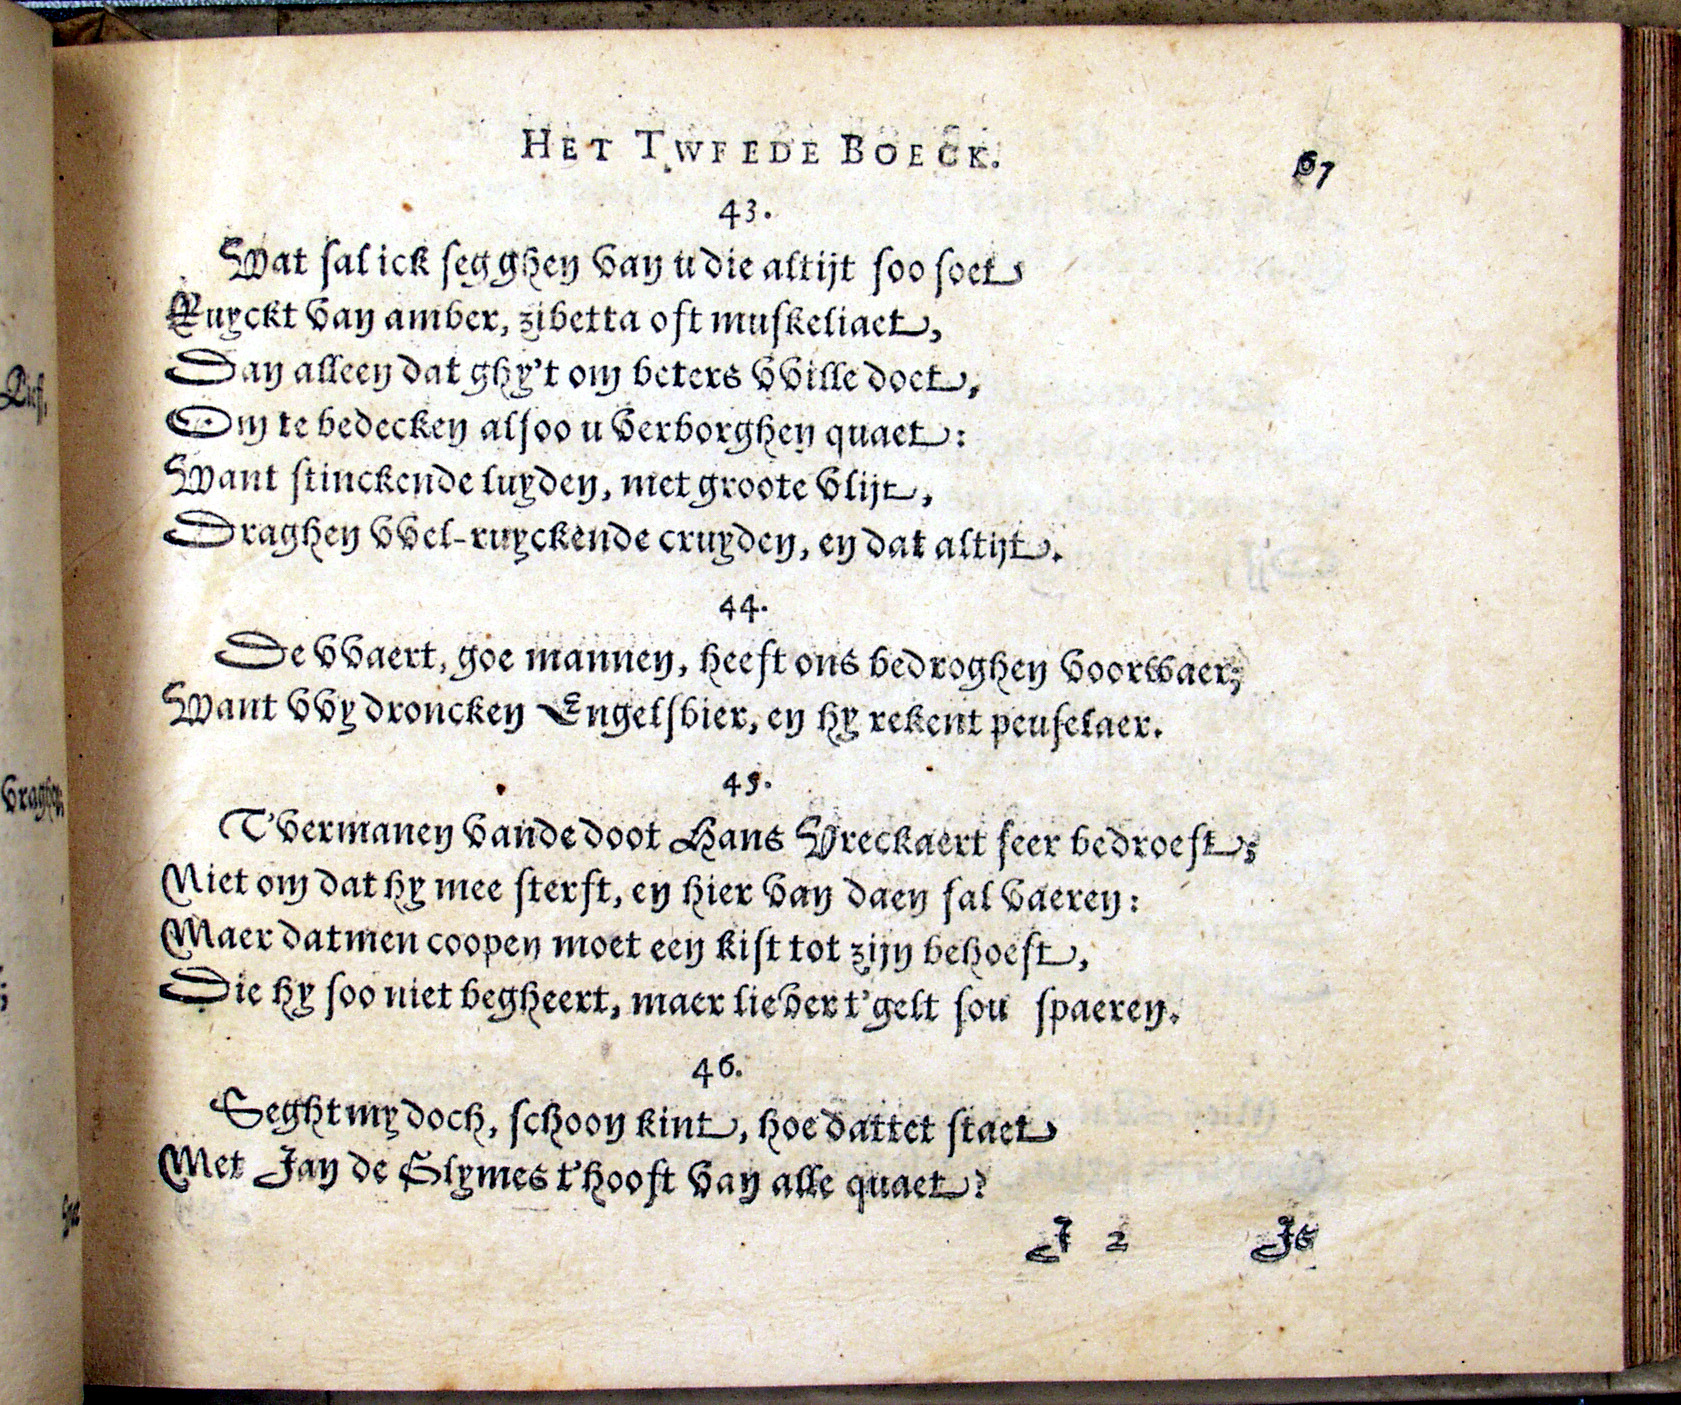 HET TWEEDE BOECK. 67
43.
Wat sal ick segghen van u die altijt soo soet
Ruyckt van amber, zibetta oft muskeliaet,
Dan alleen dat ghy't om beters wille doet,
Om te bedecken alsoo u verborghen quaet:
Want stinckende luyden, met groote vlijt,
Draghen wel-ruyckende cruyden, en dat altijt.
44.
De waert, goe mannen, heeft ons bedroghen voorwaer;
Want wy droncken Engelsbier, en hy rekent peuselaer.
45.
T'vermanen vande doot Hans Vreckaert seer bedroeft;
Niet om dat hy mee sterft, en hier van daen sal vaeren:
Maer datmen coopen moet een kist tot zijn behoeft,
Die hy soo niet begheert, maer liever t'gelt sou spaeren.
46.
Seght my doch, schoon kint, hoe dattet staet
Met Jan de Slymes t'hooft van alle quaet?
I 2 Is